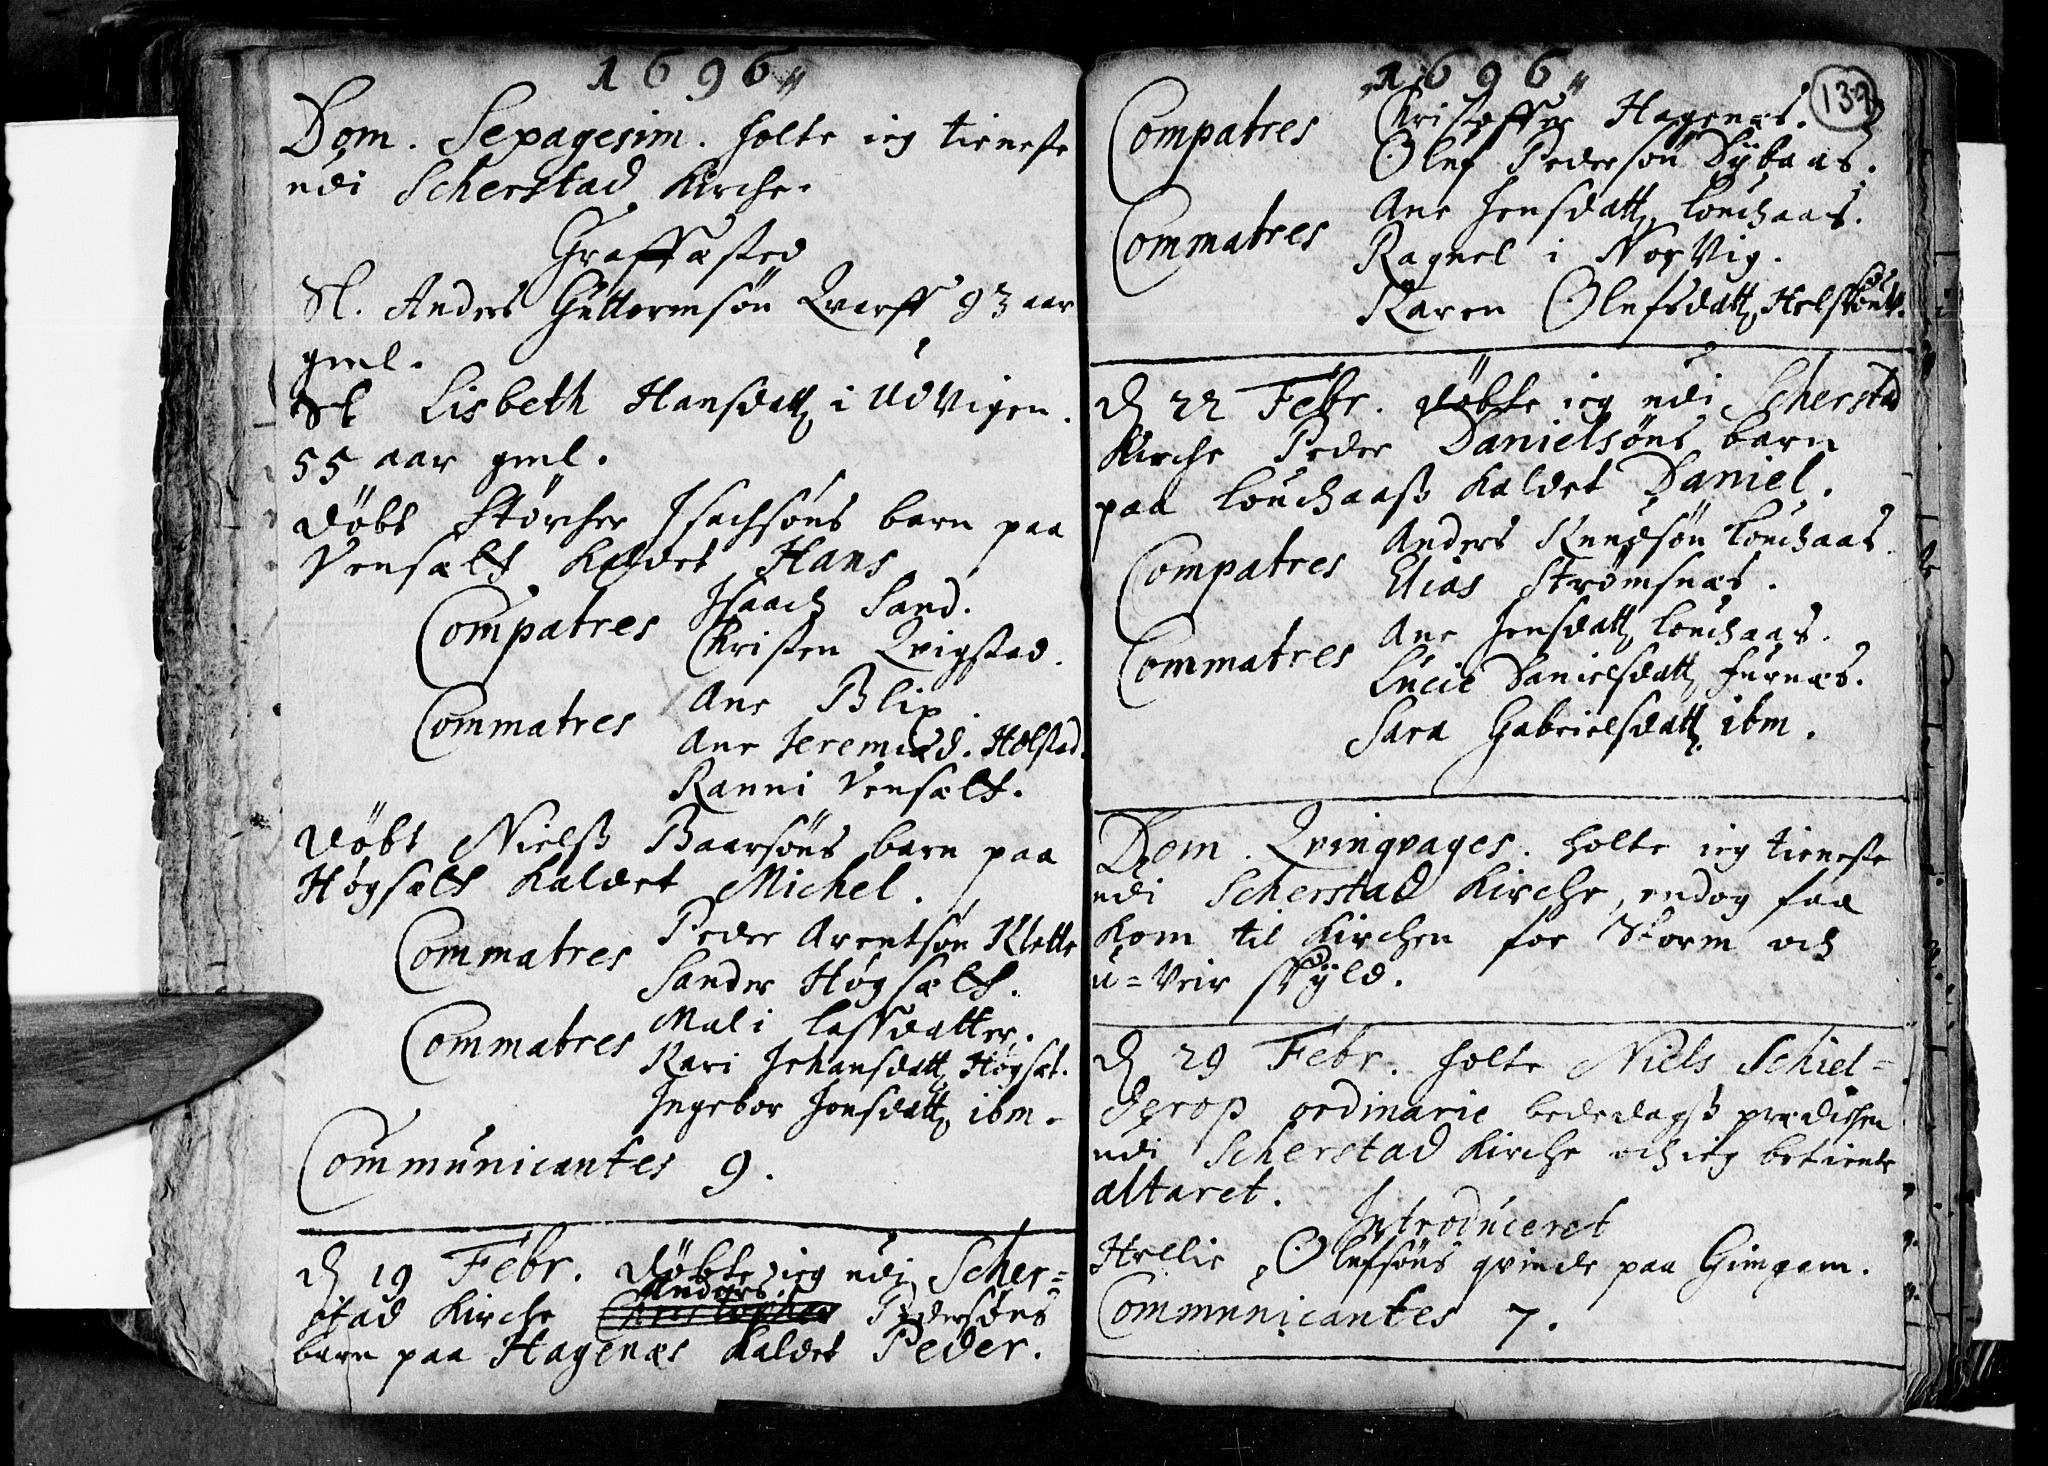 1696
Dom. Sexagesim. holte ieg tieneste
udi Scherstad Kirche.
Graffæsted
Sl. Anders Guttormsøn Qvarff 93 aar
gml.
Sl Lisbeth Hansdatt i UdVigen.
55 aar gml.
Døbt Størcher Isachsøns barn paa
Vensæltt Kaldet Hans
Compatres Isaach Sand.
Christen Qvigstad.
Commatres Ane Blix
Ane Jeremiæd. Holstad.
Ranni Vensælt.
Døbt Nielß Baarsøns barn paa
Høgsælt Kaldet Michel.
Commatres Peder Arentsøn Klette
Sander Høgsælt.
Commatres Mali Lassdatter.
Kari Johansdatt Høgsæt.
Ingebor Jonsdatt ibm.
Communicantes 9.
D 19 Febr. Døbte ieg udi Scher=
stad Kirche Anders Christopher Pedersøns
barn paa Hagenæs Kaldet Peder.
1696
139
Compatres Christoffer Hagenæs.
Oluf Pedersøn Dybaas.
Commatres Ane Jensdatt Louchaas.
Ragnel i NorVig.
Karen Olufsdatt
D 22 Febr. døbte ieg udi Scherstad
Kirche Peder Danielsøns barn
paa Louchaaß Kaldet Daniel.
Compatres Anders Knudsøn Louchaas.
Elias Strømsnæs.
Commatres Ane Jensdatt Louchaas.
Lucie Danielsdatt Furnæs.
Sara Gabrielsdatt ibm.
Dom. Qvinqvages. holte ieg tieneste
udi Scherstad Kirche, endog faa
Kom til Kirchen for Storm och
u=Veir skyld.
D 29 Febr. holte Niels Schiel=
derop ordinarie bededagß prædichen
udi Scherstad Kirche och ieg betiente
altaret.
Introduceret
Hellie Olufsøns qvinde paa Gimgam.
Communicantes 7.